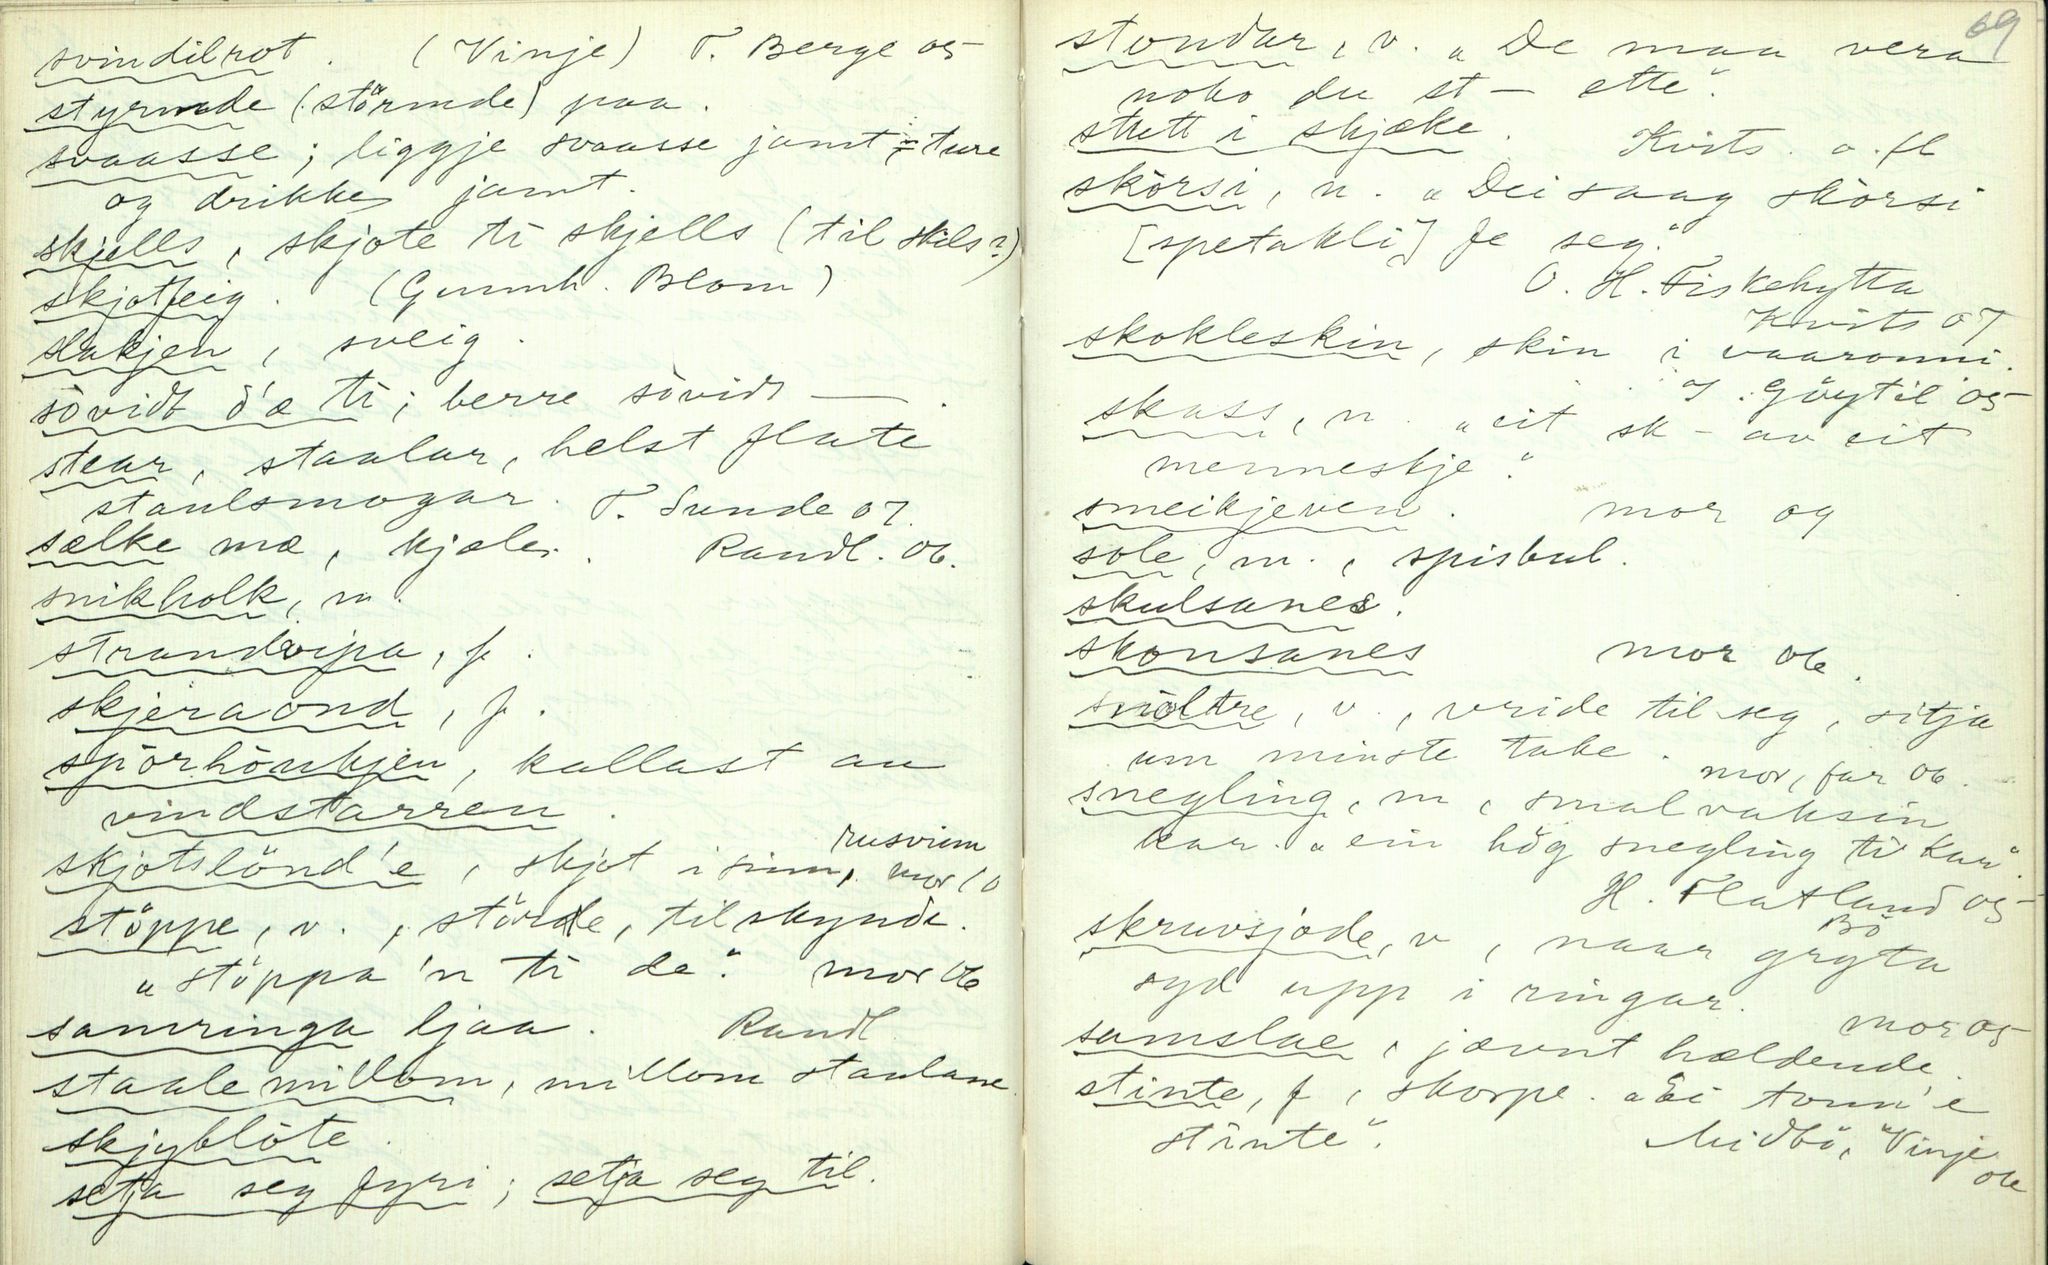 svindilrot. (Vinje) T. Berge 05
styrmde (störmde) paa.
svaasse; liggje svaasse jamt = ture
og drikke jamt.
skjells, skjote ti skjells (til skils?)
skjotfeig. (Gunnh. Blom)
slakjen, sveig.
sòvidt ò'æ ti; berre sòvidt —.
stear, staular, helst flate
staulsmogar. T. Sunde 07.
sælke mæ, kjæle. Randl. 06.
snikholk, m.
strandvipa, f.
skjeraond, f.
spörhönkjen, kallast au
vindstarren.
rusvium
skjotslönd'e, skjot i sinn, mor 10
stöppe, v., störde, tilskynde.
„stöppa'n ti de". mor 06
samringa ljaa. Randl.
staalemillom, millom staulane
skjyblöte.
setja seg fyri; setja seg til.
69
stondar, v. „De maa vera
noko du st— ette".
stutt i skjæke. Kvits. o. fl
skòrsi, n. „Dei saag skòrsi
[spetakli] fe seg."
O. H. Fiskehytta
Kvits 07
skokleskin, skin i vaaronni.
J. Göytil 05
skass, n. „eit sk— av eit
menneskje".
smeikjeven. mor 09
sole, m., spisbul.
skulsanes.
skonsanes mor 06.
snöltre, v., vride til seg, sitja
um minste take. mor, far 06.
snegling, m, smalvaksin
kar. „ein høg snegling ti kar".
H. Flatland 05
Bö
skruvsjode, v, naar gryta
syd upp i ringar.
mor 05
samslae, jævnt hældende,
stinte, f, skorpe. „Ei tonn'e
stinte". Midbö, Vinje
06